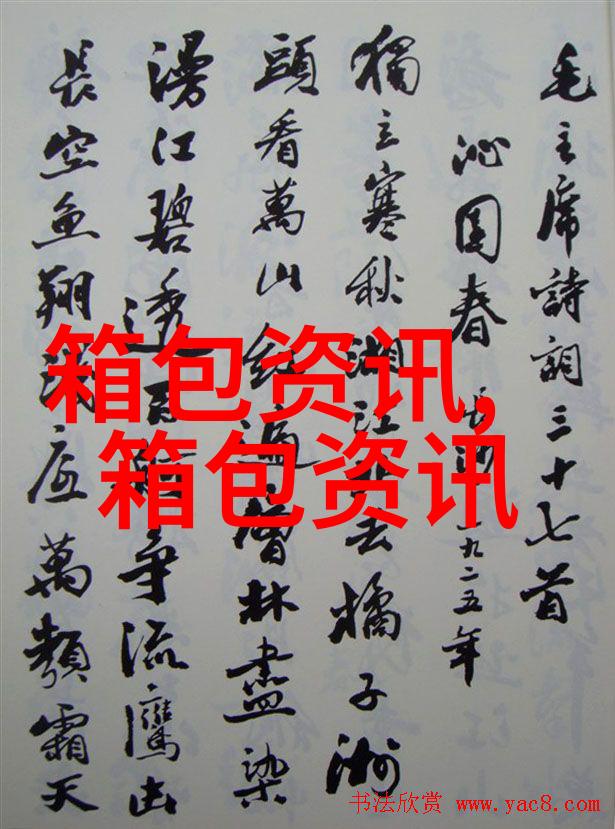 毛主席詩詞三十七首
沁園春 長沙 一九二五年
獨立寒秋湘江北去橘子洲
頭看萬山紅遍層林盡染
漫江碧透百舸爭流鷹击
長空魚翔淺底萬類霜天
箱包资讯,
箱包资讯
书法欣赏 www.yac8.com